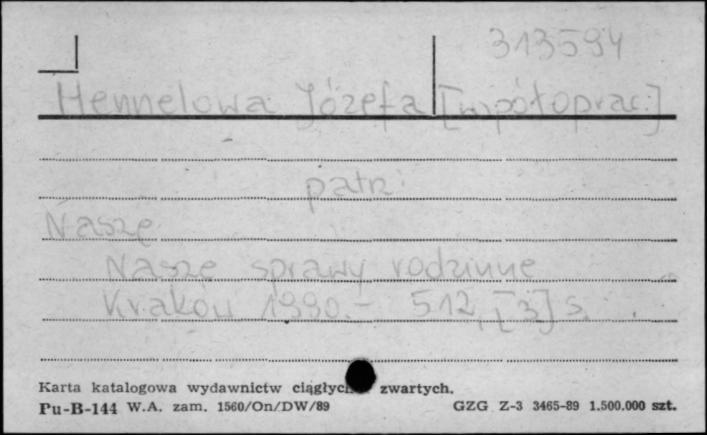 313594
Hennelowa Józefa [współoprac.]
patrz:
Nasze
Nasze sprawy rodzinne
Kraków 1990.- 512, [3] s.
Karta katalogowa wydawnictw ciągłych zwartych.
Pu-B-144 W.A. zam. 1560/On/DW/89 GZG Z-3 3465-89 1.500.000 szt.